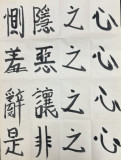 惻隱之心
羞惡之心
辭讓之心
是非之心